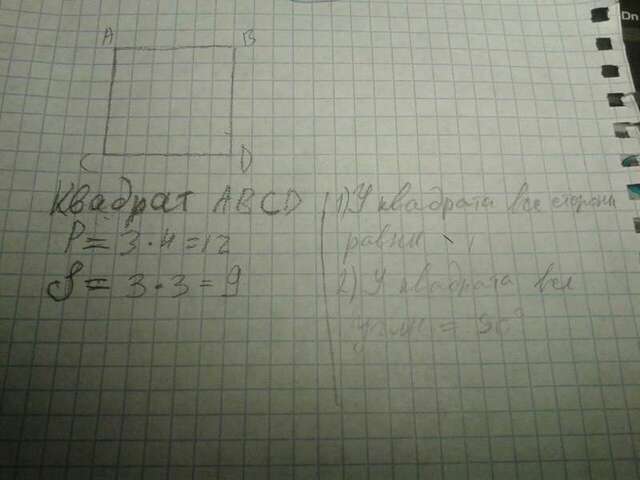 Dn
A B
C D
Квадрат ABCD
P = 3 · 4 = 12
S = 3 · 3 = 9
1) У квадрата все стороны
равны
2) У квадрата все
углы = 90°